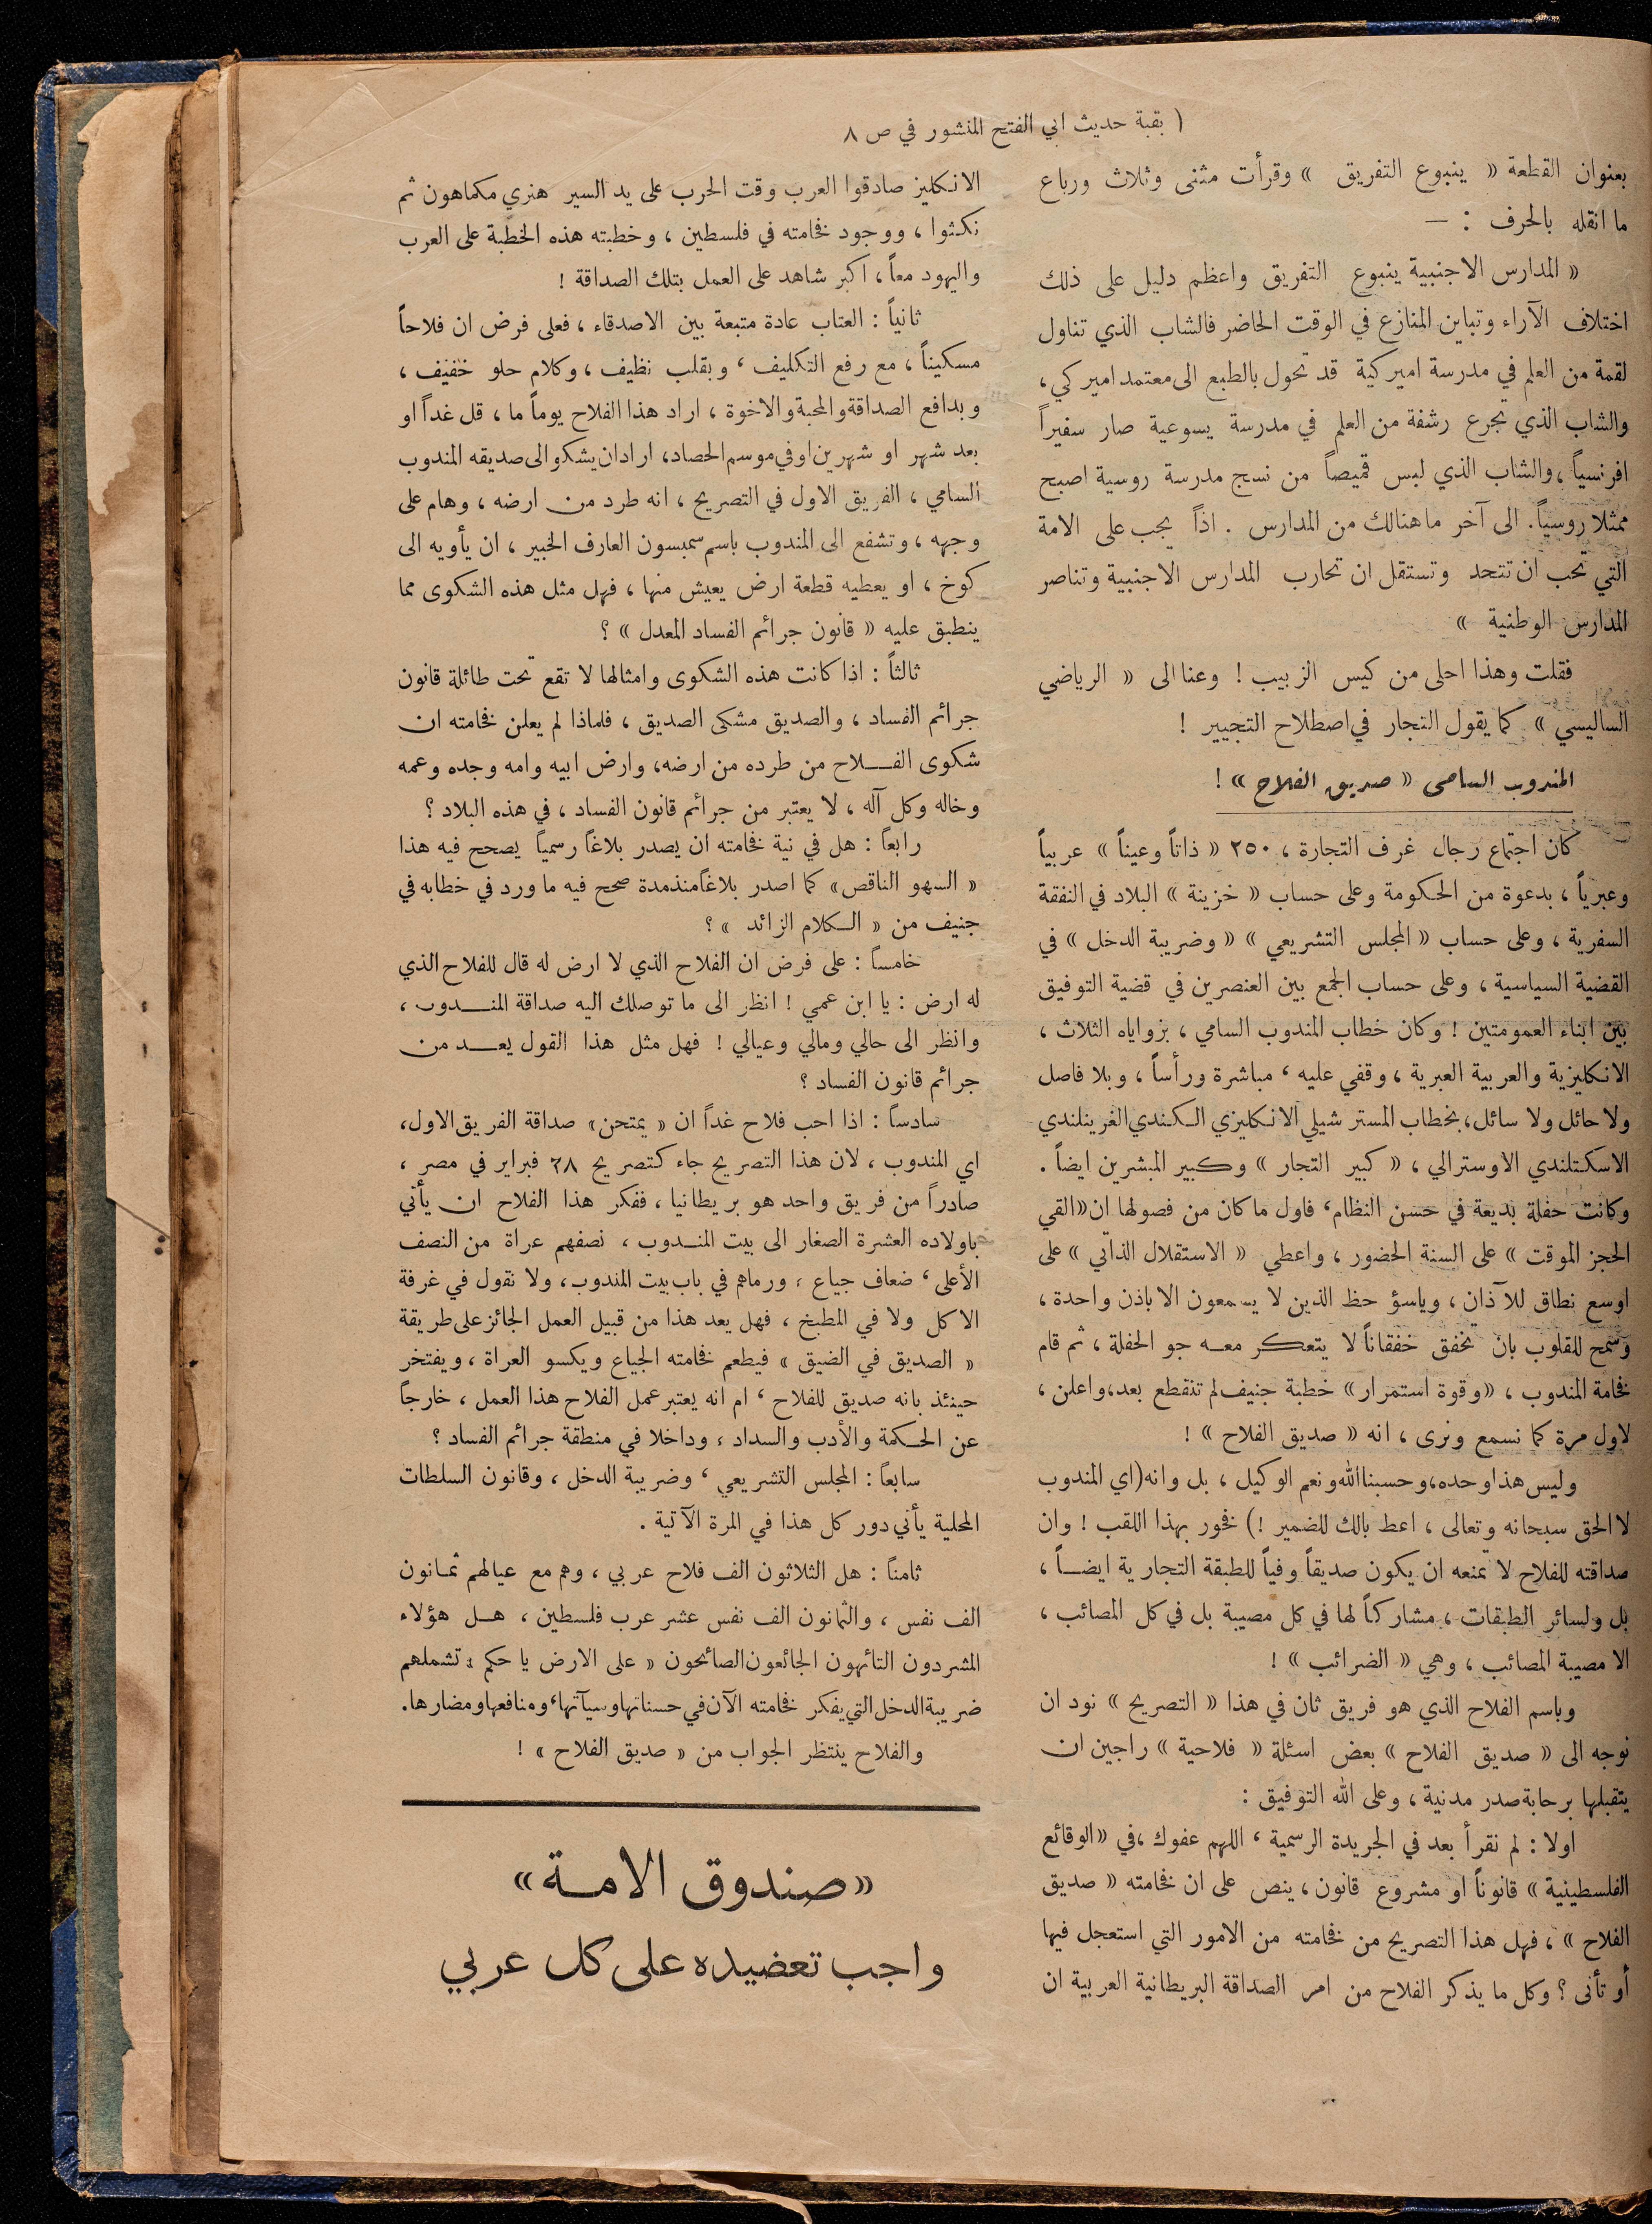 ( بقية حديث ابي الفتح المنشور في ص ٨
بعنوان القطعة « ينبوع التفريق » وقرأت مثنى وثلاث ورباع
ما انقله بالحرف : —
« المدارس الاجنبية ينبوع التفريق واعظم دليل على ذلك
اختلاف الآراء وتباين المنازع في الوقت الحاضر فالشاب الذي تناول
لقمة من العلم في مدرسة اميركية قد تحول بالطبع الى معتمد اميركي ،
والشاب الذي تجرع رشفة من العلم في مدرسة يسوعية صار سفيراً
افرنسياً ، والشاب الذي لبس قميصاً من نسج مدرسة روسية اصبح
ممثلا روسياً . الى آخر ما هنالك من المدارس . اذاً يجب على الامة
التي تحب ان تتحد وتستقل ان تحارب المدارس الاجنبية وتناصر
المدارس الوطنية »
فقلت وهذا احلى من كيس الزبيب ! وعنا الى « الرياضي
الساليسي » كما يقول التجار في اصطلاح التجيير !
المندوب السامي « صديق الفلاح » !
كان اجتماع رجال غرف التجارة ، ٢٥٠ « ذاتاً وعيناً » عربياً
وعبرياً ، بدعوة من الحكومة وعلى حساب « خزينة » البلاد في النفقة
السفرية ، وعلى حساب « المجلس التشريعي » « وضريبة الدخل » في
القضية السياسية ، وعلى حساب الجمع بين العنصرين في قضية التوفيق
بين ابناء العمومتين ! وكان خطاب المندوب السامي ، بزواياه الثلاث ،
الانكليزية والعربية العبرية ، وقفي عليه ، مباشرة ورأساً ، وبلا فاصل
ولا حائل ولا سائل ، بخطاب المستر شيلي الانكليزي الكندي الغرينلندي
الاسكتلندي الاوسترالي ، « كبير التجار » وكبير المبشرين ايضاً .
وكانت حفلة بديعة في حسن النظام ، فاول ما كان من فصولها ان «القي
الحجز الموقت » على السنة الحضور ، واعطي « الاستقلال الذاتي » على
اوسع نطاق للآذان ، وياسؤ حظ الذين لا يسمعون الا باذن واحدة ،
وسمح للقلوب بان تخفق خفقاناً لا يتعكر معه جو الحفلة ، ثم قام
فخامة المندوب ، «وقوة استمرار» خطبة جنيف لم تنقطع بعد ، واعلن ،
لاول مرة كما نسمع ونرى ، انه « صديق الفلاح » !
وليس هذا وحده ، وحسبنا الله ونعم الوكيل ، بل وانه (اي المندوب
لا الحق سبحانه وتعالى ، اعط بالك للضمير !) فخور بهذا اللقب ! وان
صداقته للفلاح لا تمنعه ان يكون صديقاً وفياً للطبقة التجارية ايضاً ،
بل ولسائر الطبقات ، مشاركاً لها في كل مصيبة بل في كل المصائب ،
الا مصيبة المصائب ، وهي « الضرائب » !
وباسم الفلاح الذي هو فريق ثان في هذا « التصريح » نود ان
نوجه الى « صديق الفلاح » بعض اسئلة « فلاحية » راجين ان
يتقبلها برحابة صدر مدنية ، وعلى الله التوفيق :
اولا : لم نقرأ بعد في الجريدة الرسمية ، اللهم عفوك ، في «الوقائع
الفلسطينية » قانوناً او مشروع قانون ، ينص على ان فخامته « صديق
الفلاح » ، فهل هذا التصريح من فخامته من الامور التي استعجل فيها
أو تأنى ؟ وكل ما يذكر الفلاح من امر الصداقة البريطانية العربية ان
الانكليز صادقوا العرب وقت الحرب على يد السير هنري مكماهون ثم
نكثوا ، ووجود فخامته في فلسطين ، وخطبته هذه الخطبة على العرب
واليهود معاً ، اكبر شاهد على العمل بتلك الصداقة !
ثانياً : العتاب عادة متبعة بين الاصدقاء ، فعلى فرض ان فلاحاً
مسكيناً ، مع رفع التكليف ، وبقلب نظيف ، وكلام حلو خفيف ،
وبدافع الصداقة والمحبة والاخوة ، اراد هذا الفلاح يوماً ما ، قل غداً او
بعد شهر او شهرين او في موسم الحصاد ، اراد ان يشكو الى صديقه المندوب
السامي ، الفريق الاول في التصريح ، انه طرد من ارضه ، وهام على
وجهه ، وتشفع الى المندوب باسم سمبسون العارف الخبير ، ان يأويه الى
كوخ ، او يعطيه قطعة ارض يعيش منها ، فهل مثل هذه الشكوى مما
ينطبق عليه « قانون جرائم الفساد المعدل » ؟
ثالثاً : اذا كانت هذه الشكوى وامثالها لا تقع تحت طائلة قانون
جرائم الفساد ، والصديق مشكى الصديق ، فلماذا لم يعلن فخامته ان
شكوى الفلاح من طرده من ارضه ، وارض ابيه وامه وجده وعمه
وخاله وكل آله ، لا يعتبر من جرائم قانون الفساد ، في هذه البلاد ؟
رابعاً : هل في نية فخامته ان يصدر بلاغاً رسمياً يصحح فيه هذا
« السهو الناقص» كما اصدر بلاغاً منذ مدة صحح فيه ما ورد في خطابه في
جنيف من « الكلام الزائد » ؟
خامساً : على فرض ان الفلاح الذي لا ارض له قال للفلاح الذي
له ارض : يا ابن عمي ! انظر الى ما توصلك اليه صداقة المندوب ،
وانظر الى حالي ومالي وعيالي ! فهل مثل هذا القول يعد من
جرائم قانون الفساد ؟
سادساً : اذا احب فلاح غداً ان « يمتحن» صداقة الفريق الاول ،
اي المندوب ، لان هذا التصريح جاء كتصريح ٢٨ فبراير في مصر ،
صادراً من فريق واحد هو بريطانيا ، ففكر هذا الفلاح ان يأتي
باولاده العشرة الصغار الى بيت المندوب ، نصفهم عراة من النصف
الأعلى ، ضعاف جياع ، ورماهم في باب بيت المندوب ، ولا نقول في غرفة
الاكل ولا في المطبخ ، فهل يعد هذا من قبيل العمل الجائز على طريقة
« الصديق في الضيق » فيطعم فخامته الجياع ويكسو العراة ، ويفتخر
حينئذ بانه صديق للفلاح ، ام انه يعتبر عمل الفلاح هذا العمل ، خارجاً
عن الحكمة والأدب والسداد ، وداخلا في منطقة جرائم الفساد ؟
سابعاً : المجلس التشريعي ، وضريبة الدخل ، وقانون السلطات
المحلية يأتي دور كل هذا في المرة الآتية .
ثامناً : هل الثلاثون الف فلاح عربي ، وهم مع عيالهم ثمانون
الف نفس ، والثمانون الف نفس عشر عرب فلسطين ، هل هؤلاء
المشردون التائهون الجائعون الصائحون « على الارض يا حكم » تشملهم
ضريبة الدخل التي يفكر فخامته الآن في حسناتها وسيآتها ، ومنافعها ومضارها .
والفلاح ينتظر الجواب من « صديق الفلاح » !
«صندوق الامة»
واجب تعضيده على كل عربي